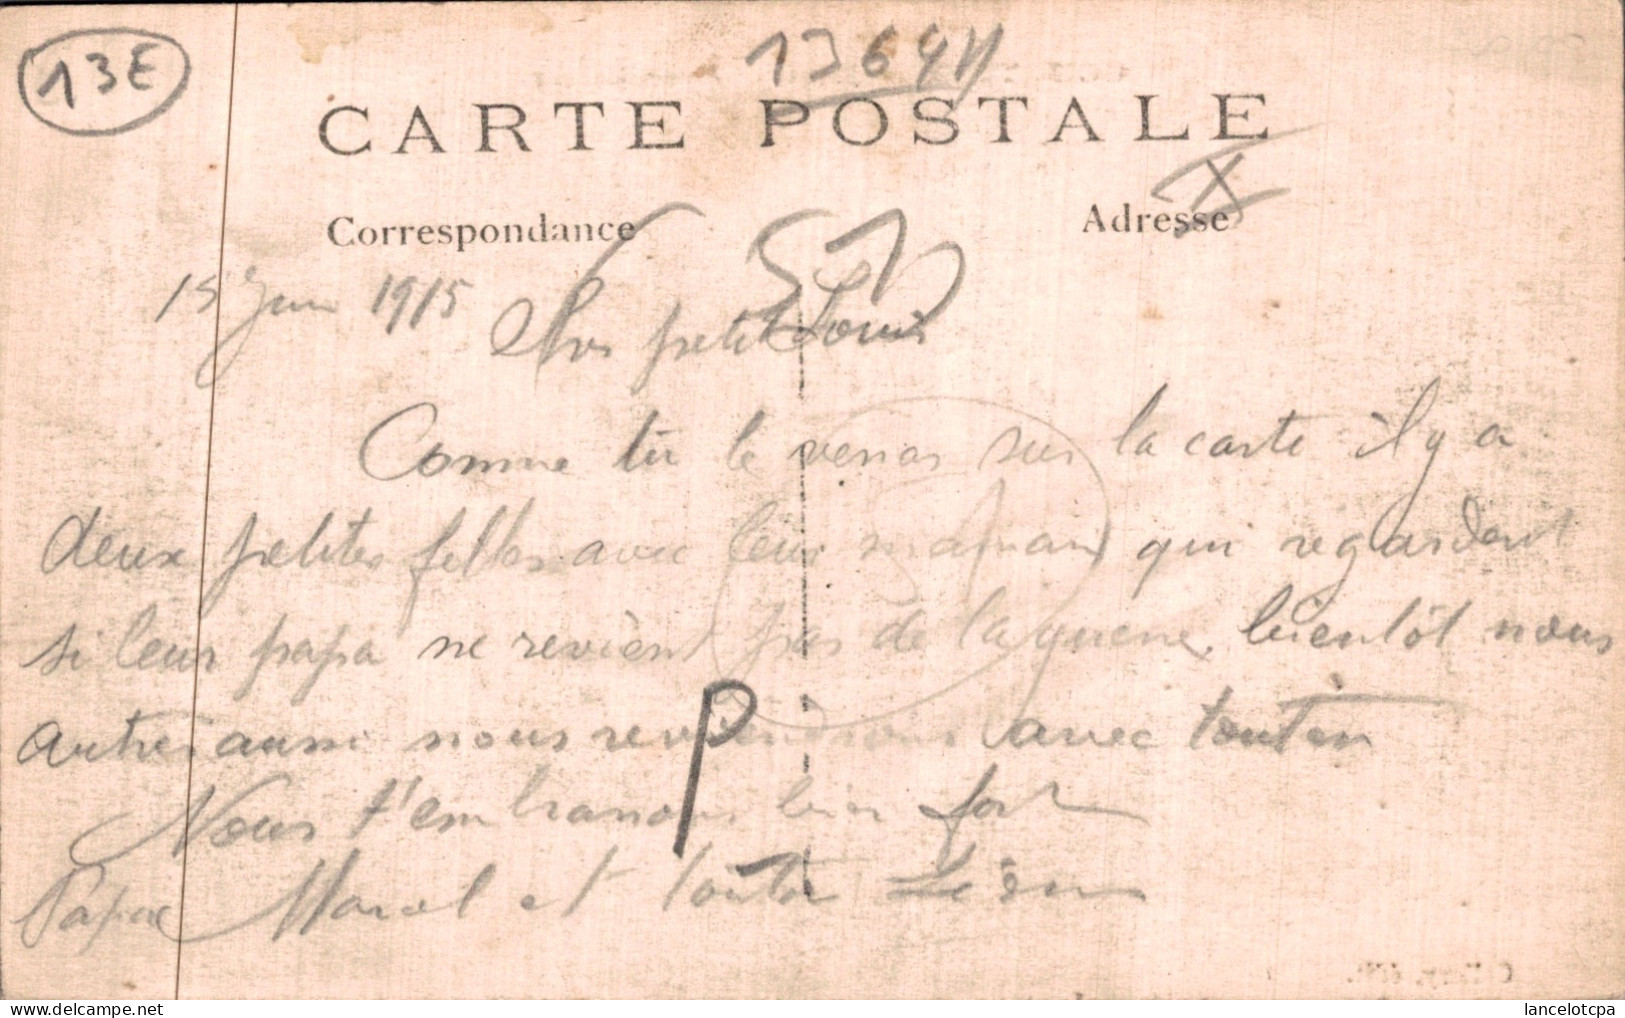 13E
13641
CARTE POSTALE
Correspondance
Adresse
15 Juin 1915
Mon petit Louis
Comme tu le verras sur la carte il y a
deux petites filles avec leur maman qui regardent
si leur papa ne revient pas de la guerre, bientôt nous
autres aussi nous reviendrons avec tonton
Nous t'embrassons bien fort
Papa Marcel et tonton
P
lancelotcpa